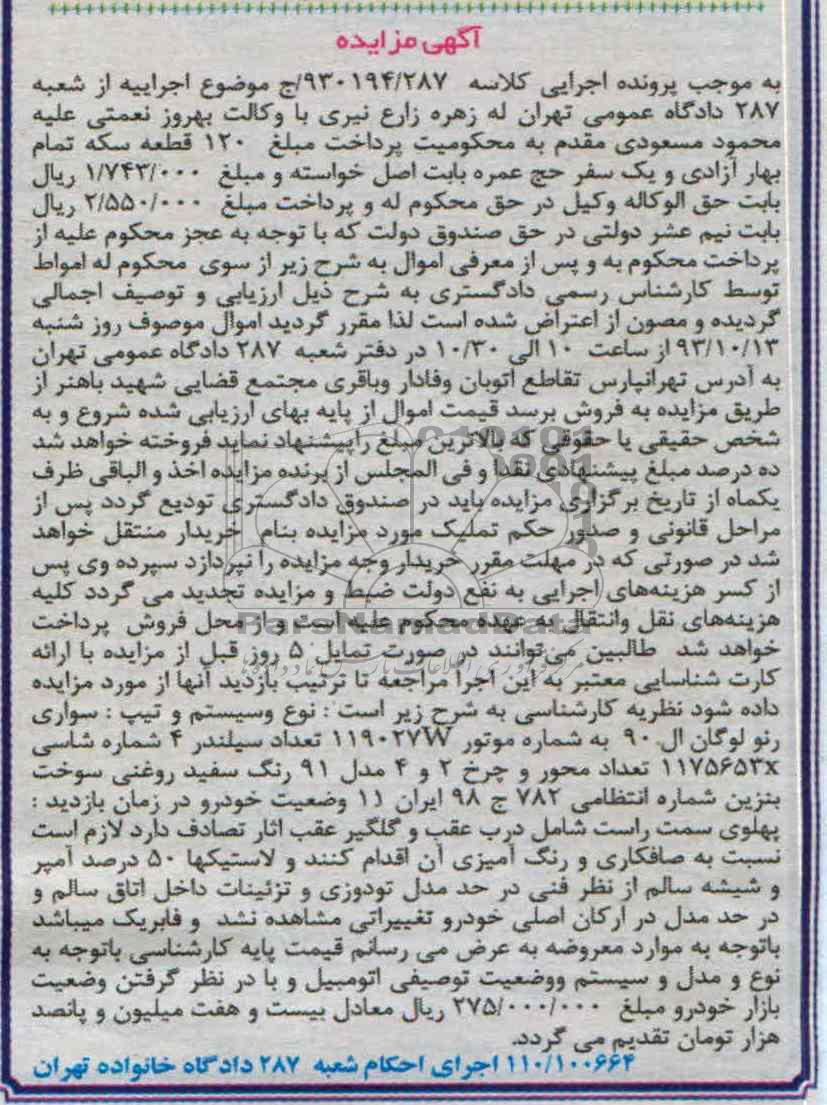 آگهی مزایده
به موجب پرونده اجرایی کلاسه ۹۳۰۱۹۴/۲۸۷/ج موضوع اجراییه از شعبه
۲۸۷ دادگاه عمومی تهران له زهره زارع نیری با وکالت بهروز نعمتی علیه
محمود مسعودی مقدم به محکومیت پرداخت مبلغ ۱۲۰ قطعه سکه تمام
بهار آزادی و یک سفر حج عمره بابت اصل خواسته و مبلغ ۱/۷۴۳/۰۰۰ ریال
بابت حق الوکاله وکیل در حق محکوم له و پرداخت مبلغ ۲/۵۵۰/۰۰۰ ریال
بابت نیم عشر دولتی در حق صندوق دولت که با توجه به عجز محکوم علیه از
پرداخت محکوم به و پس از معرفی اموال به شرح زیر از سوی محکوم له امواط
توسط کارشناس رسمی دادگستری به شرح ذیل ارزیابی و توصیف اجمالی
گردیده و مصون از اعتراض شده است لذا مقرر گردید اموال موصوف روز شنبه
۹۳/۱۰/۱۳ از ساعت ۱۰ الی ۱۰/۳۰ در دفتر شعبه ۲۸۷ دادگاه عمومی تهران
به آدرس تهرانپارس تقاطع اتوبان وفادار وباقری مجتمع قضایی شهید باهنر از
طریق مزایده به فروش برسد قیمت اموال از پایه بهای ارزیابی شده شروع و به
شخص حقیقی یا حقوقی که بالاترین مبلغ راپیشنهاد نماید فروخته خواهد شد
ده درصد مبلغ پیشنهادی نقدا و فی المجلس از برنده مزایده اخذ و الباقی ظرف
یکماه از تاریخ برگزاری مزایده باید در صندوق دادگستری تودیع گردد پس از
مراحل قانونی و صدور حکم تملیک مورد مزایده بنام خریدار منتقل خواهد
شد در صورتی که در مهلت مقرر خریدار وجه مزایده را نپردازد سپرده وی پس
از کسر هزینه‌های اجرایی به نفع دولت ضبط و مزایده تجدید می گردد کلیه
هزینه‌های نقل وانتقال به عهده محکوم علیه است و از محل فروش پرداخت
خواهد شد طالبین می‌توانند در صورت تمایل ۵ روز قبل از مزایده با ارائه
کارت شناسایی معتبر به این اجرا مراجعه تا ترتیب بازدید آنها از مورد مزایده
داده شود نظریه کارشناسی به شرح زیر است : نوع وسیستم و تیپ : سواری
رنو لوگان ال ۹۰ به شماره موتور ۱۱۹۰۲۷W تعداد سیلندر ۴ شماره شاسی
۱۱۷۵۶۵۳x تعداد محور و چرخ ۲ و ۴ مدل ۹۱ رنگ سفید روغنی سوخت
بنزین شماره انتظامی ۷۸۲ ج ۹۸ ایران ۱۱ وضعیت خودرو در زمان بازدید :
پهلوی سمت راست شامل درب عقب و گلگیر عقب اثار تصادف دارد لازم است
نسبت به صافکاری و رنگ آمیزی آن اقدام کنند و لاستیکها ۵۰ درصد آمپر
و شیشه سالم از نظر فنی در حد مدل تودوزی و تزئینات داخل اتاق سالم و
در حد مدل در ارکان اصلی خودرو تغییراتی مشاهده نشد و فابریک میباشد
باتوجه به موارد معروضه به عرض می رسانم قیمت پایه کارشناسی باتوجه به
نوع و مدل و سیستم ووضعیت توصیفی اتومبیل و با در نظر گرفتن وضعیت
بازار خودرو مبلغ ۲۷۵/۰۰۰/۰۰۰ ریال معادل بیست و هفت میلیون و پانصد
هزار تومان تقدیم می گردد.
۱۱۰/۱۰۰۶۶۴ اجرای احکام شعبه ۲۸۷ دادگاه خانواده تهران
ParsNamadData